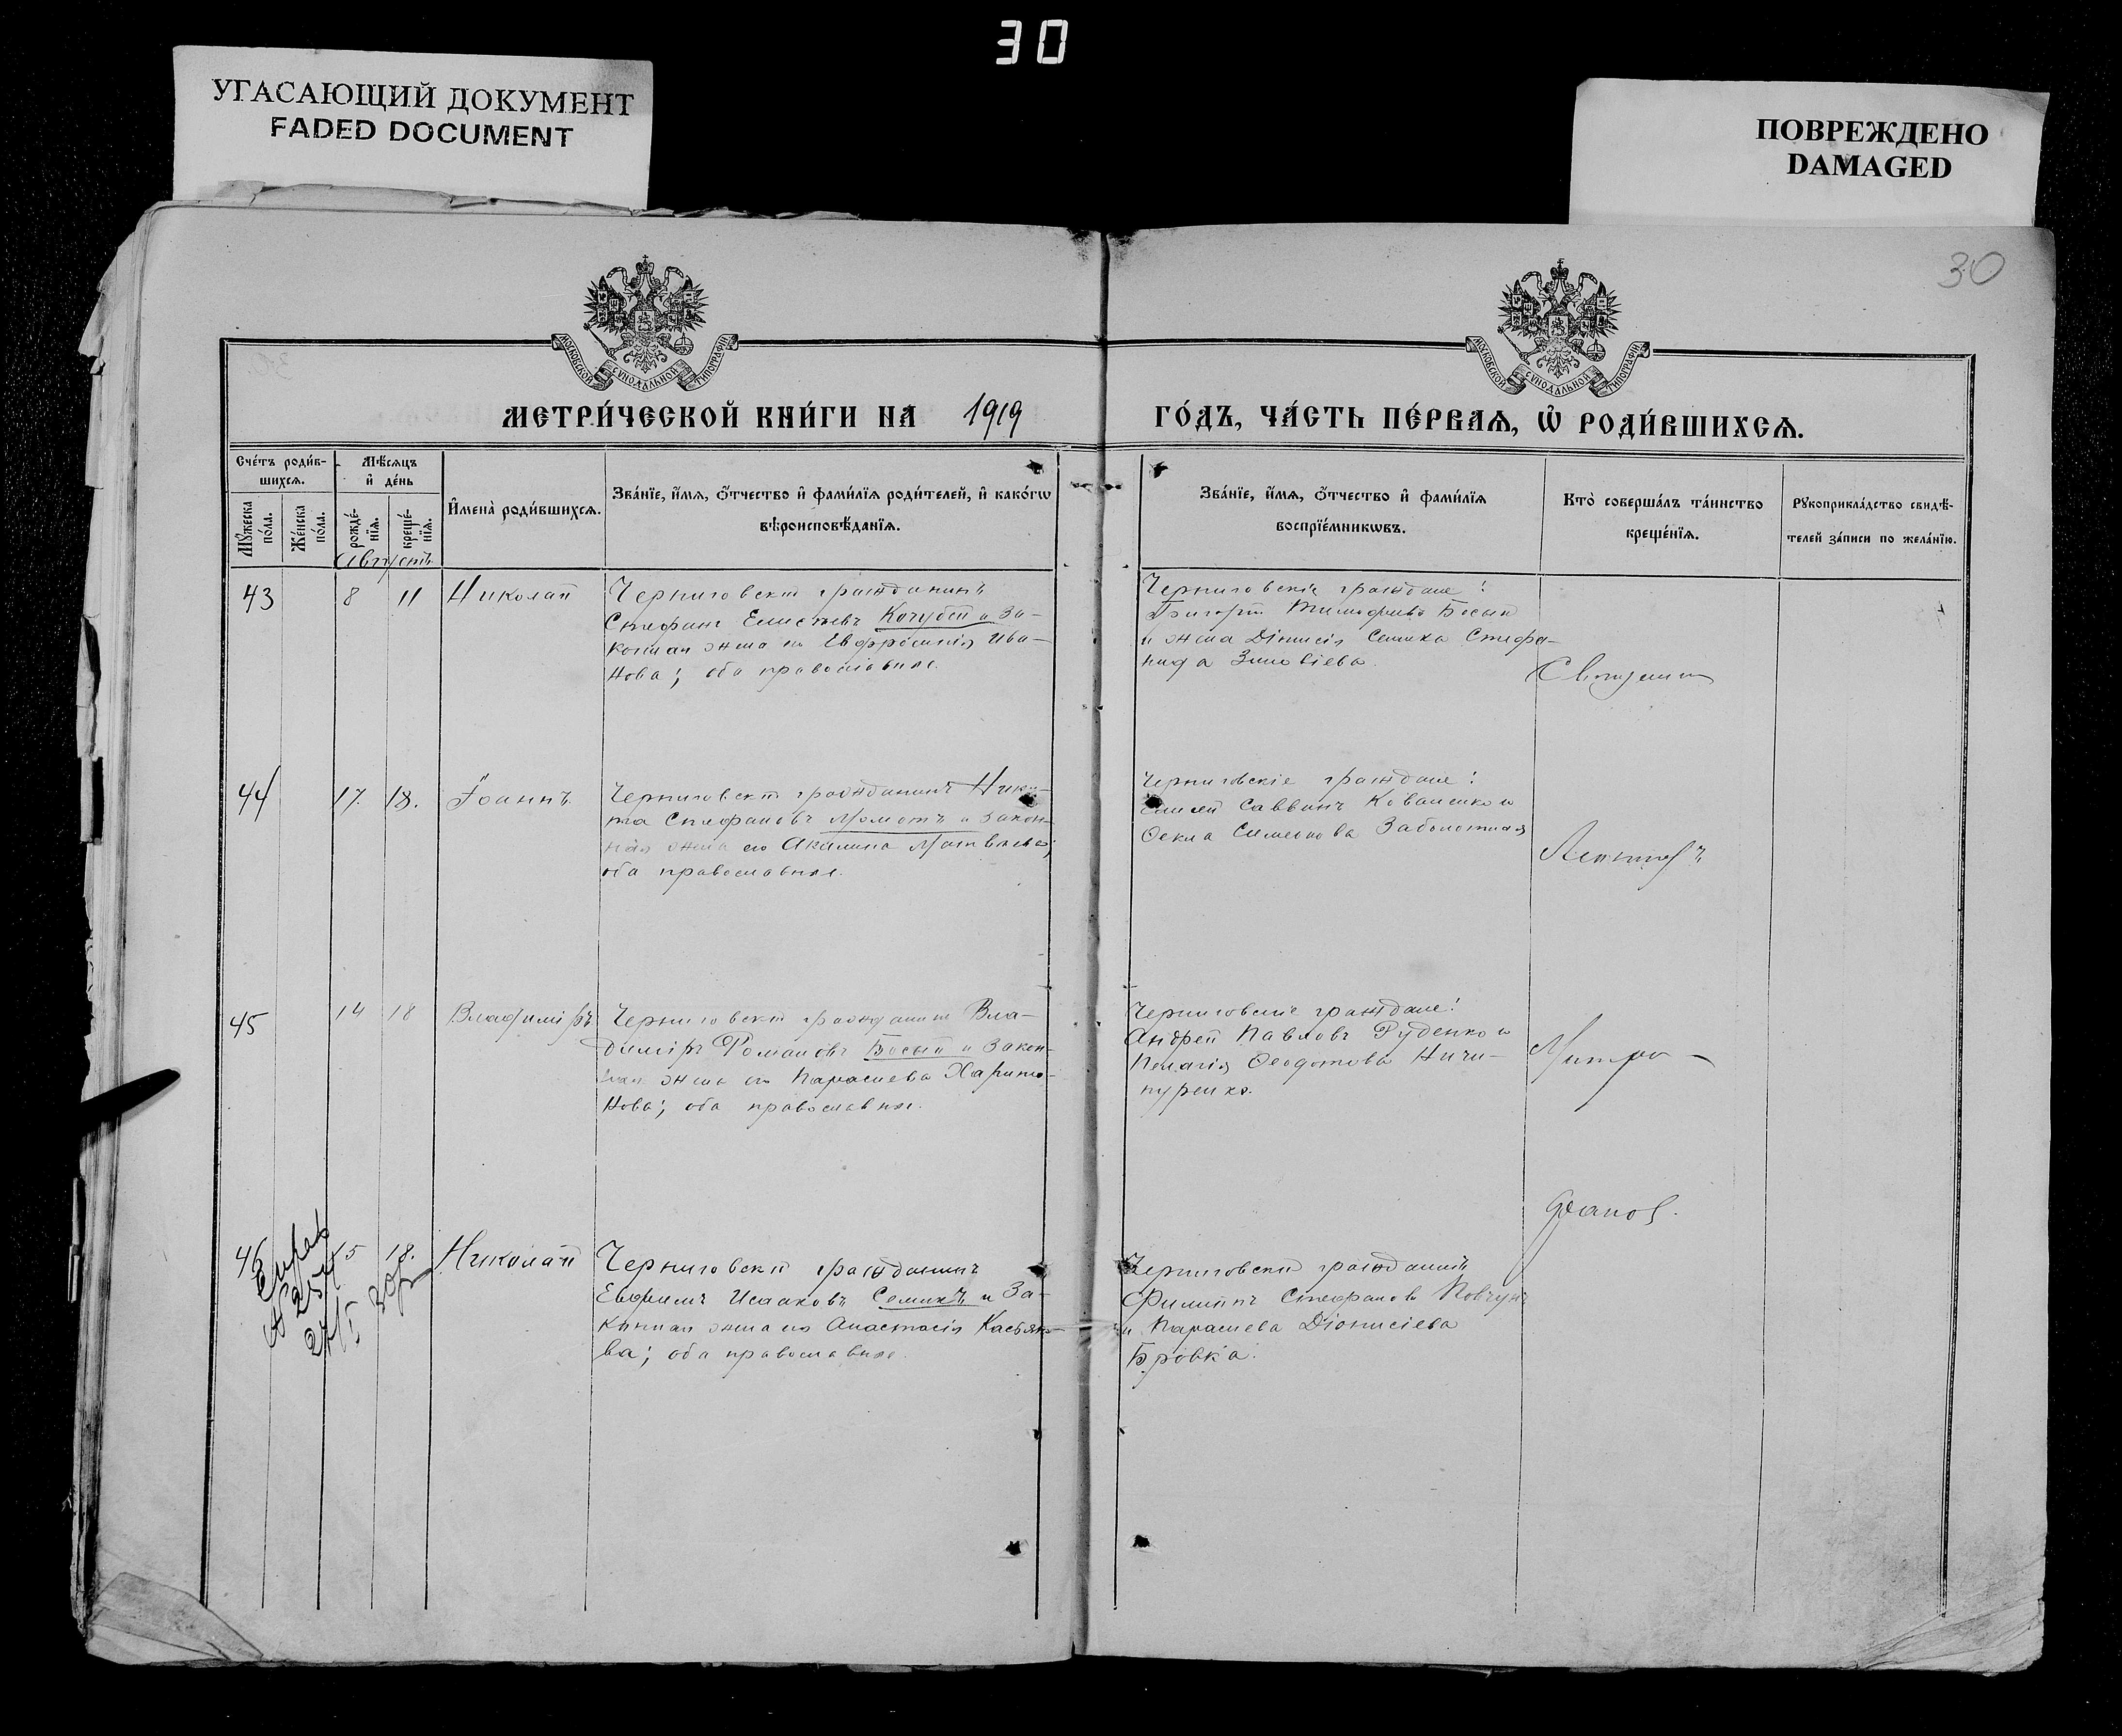 30
УГАСАЮЩИЙ ДОКУМЕНТ
FADED DOCUMENT
ПОВРЕЖДЕНО
DAMAGED
30
МОСКОВСКОЙ СѴНОДАЛЬНОЙ ТИПОГРАФІИ
МОСКОВСКОЙ СѴНОДАЛЬНОЙ ТИПОГРАФІИ
МЕТРИ́ЧЕСКОЙ КНИ́ГИ НА 1919 ГО́ДЪ, ЧА́СТЬ ПЕ́РВАЯ, Ѡ РОДИ́ВШИХСЯ.
Сче́тъ роди́в-
шихся.
Мꙋ́жеска
по́ла.
Же́нска
по́ла.
Мѣ́сяцъ
и҆ де́нь
рожде́-
нїя.
креще́-
нїя.
И҆мена̀ роди́вшихся.
Зва́нїе, и҆́мя, ѻ҆́тчество и҆ фами́лїя роди́телей, и҆ како́гѡ
вѣроисповѣ́данїя.
Зва́нїе, и҆́мя, ѻ҆́тчество и҆ фами́лїя
воспрїе́мникѡвъ.
Кто̀ соверша́лъ та́инство
креще́нїя.
Рꙋкоприкла́дство свидѣ́-
телей за́писи по жела́нїю.
Августъ
43
8 11
Николай
Черниговскій гражданинъ
Стефанъ Елисѣевъ Кочубей и за-
конная жена его Евфросинія Ива-
нова; оба православные.
Черниговскіе граждане:
Григорій Тимофѣевъ Босый
и жена Діонисія Семика Стефа-
нида Зиновіева.
44
17. 18.
Іоаннъ
Черниговскій гражданинъ Ники-
та Стефановъ Момотъ и закон-
ная жена его Акилина Матвѣева;
оба православные.
Черниговскіе граждане:
Саввинъ Коваленко и
Ѳекла Симеонова Заболотная
45
14 18
Владиміръ
Черниговскій гражданинъ Вла-
диміръ Романовъ Босый и закон-
ная жена его Параскева Харито-
нова; оба православные.
Черниговскіе граждане:
Андрей Павловъ Руденко и
Пелагія Ѳеодотова Ничи-
пуренко.
46
15 18.
Николай
Черниговскій гражданинъ
Евфимъ Исааковъ Семикъ и за-
конная жена его Анастасія Касьяно-
ва; оба православные.
Черниговскій гражданинъ
Филиппъ Стефановъ Ковчунъ
и Параскева Діонисіева
Бровка.